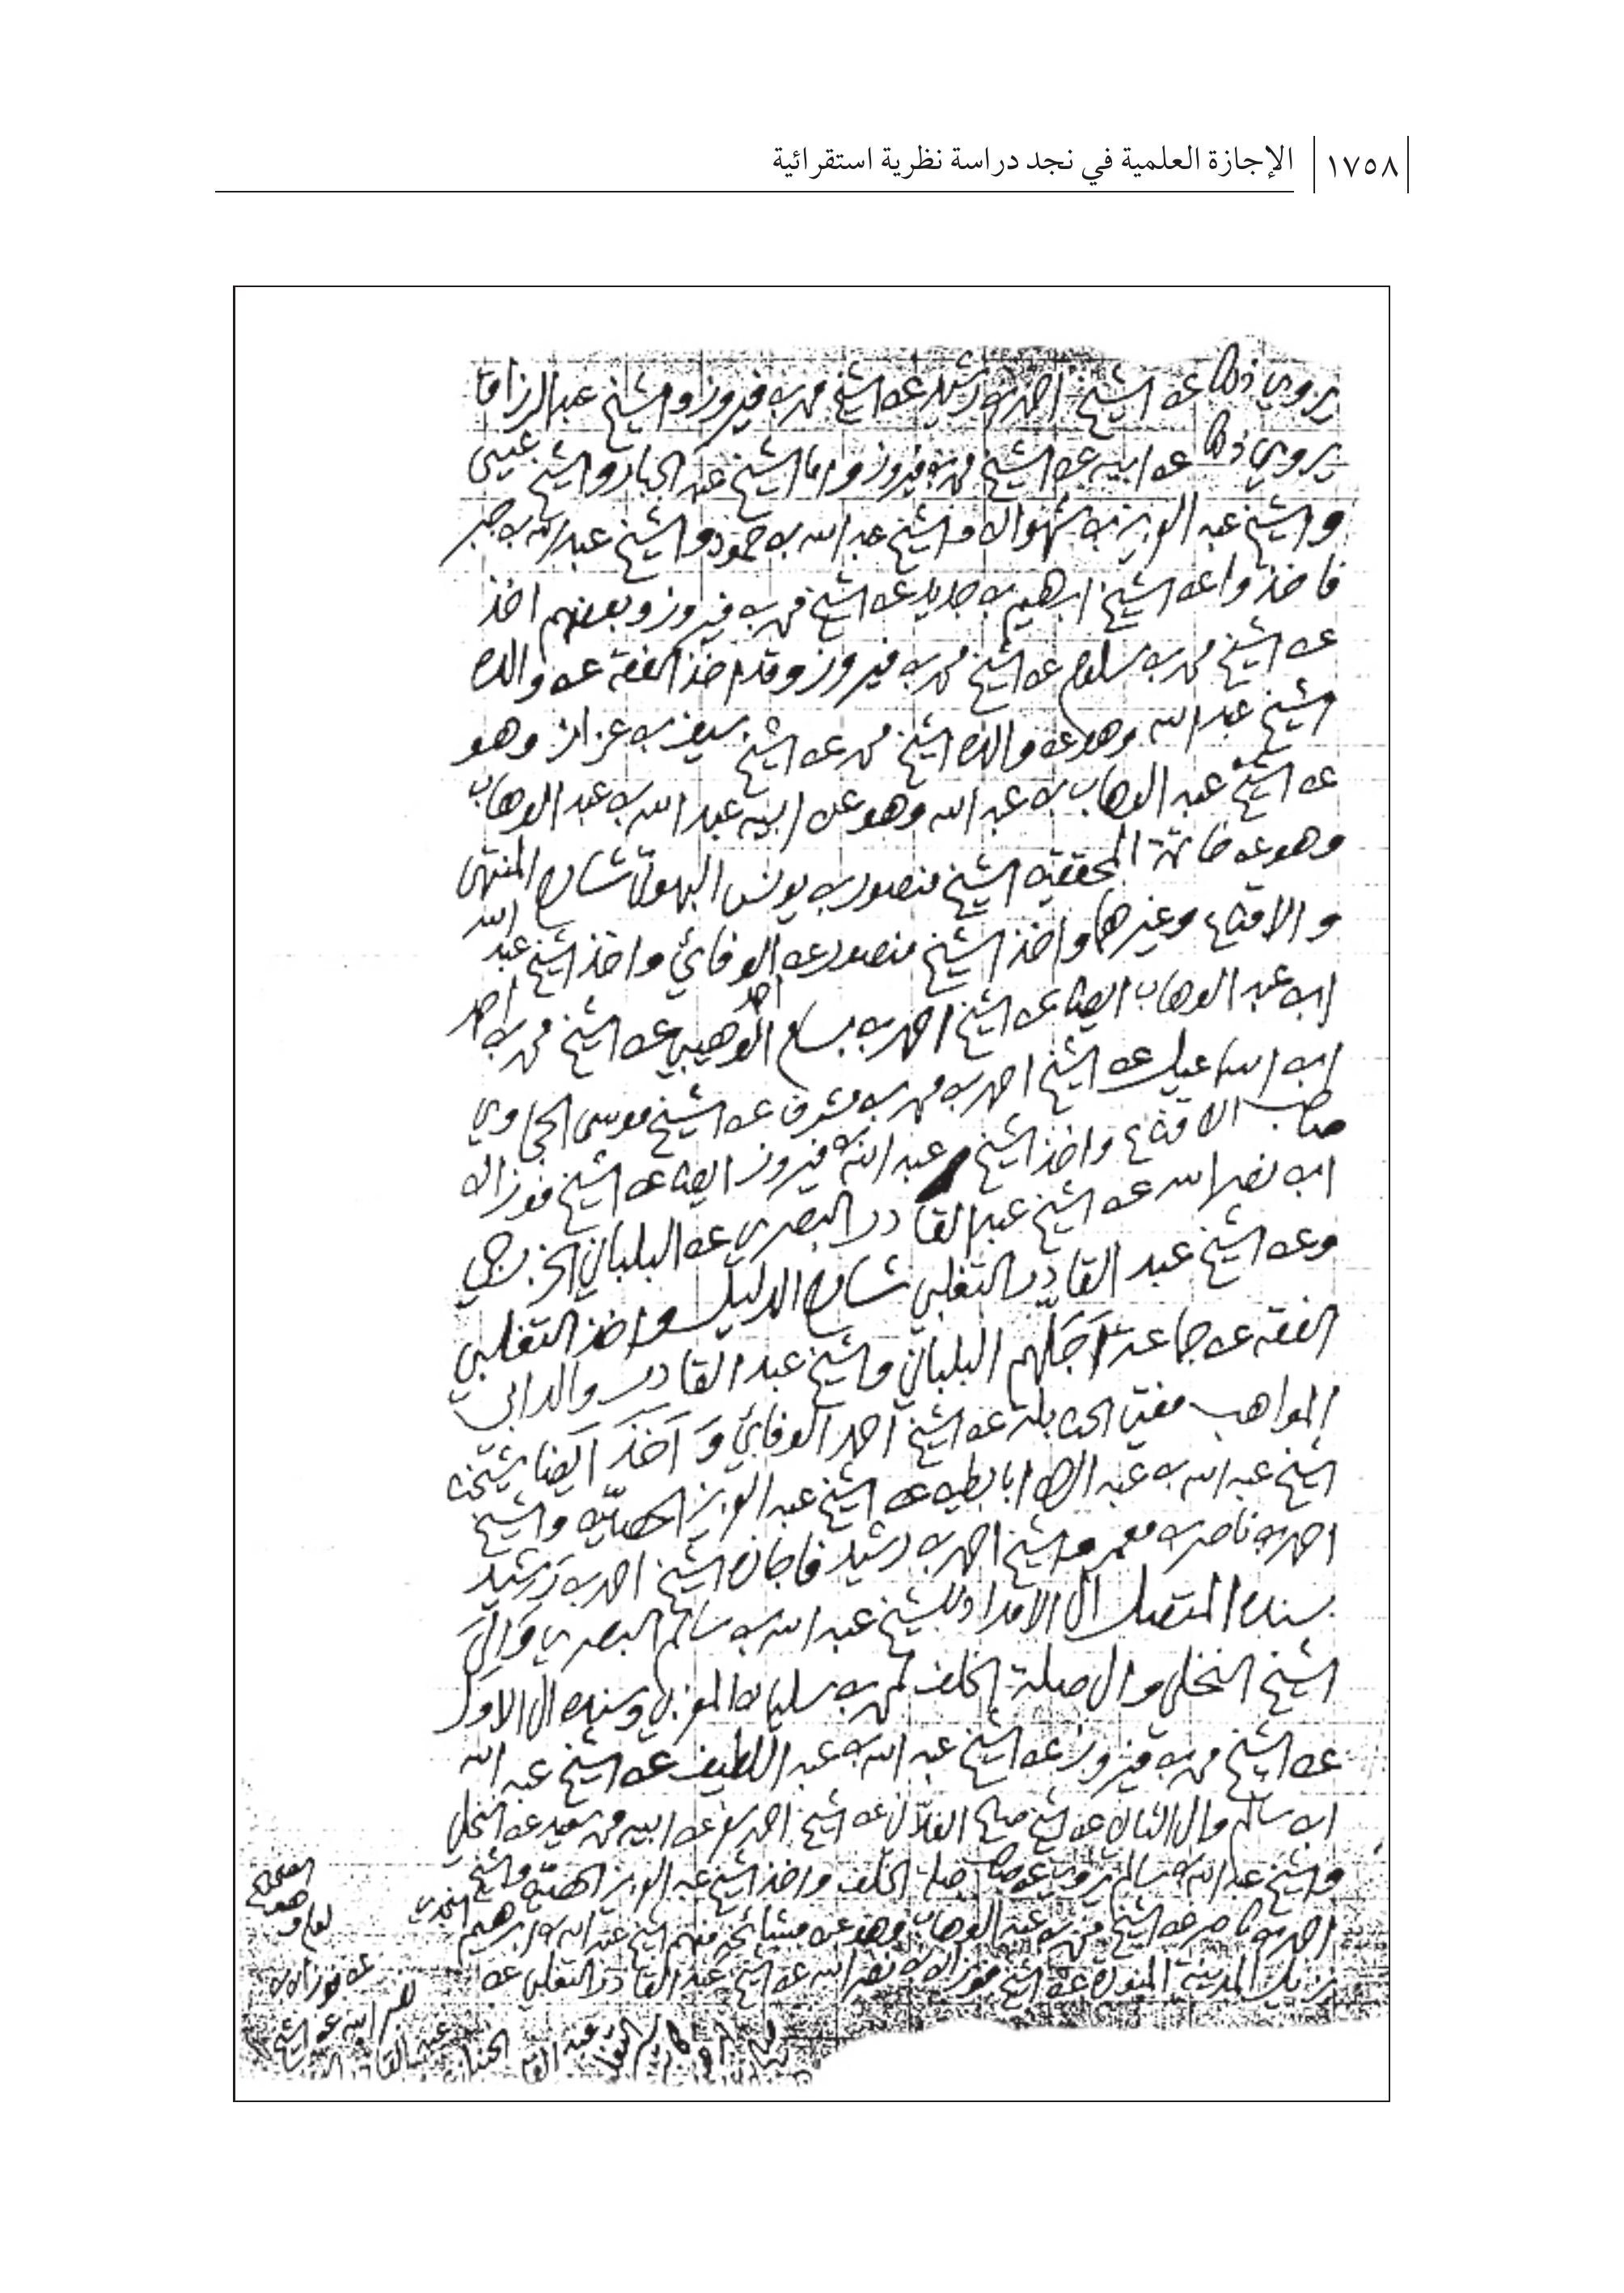 ١٧٥٨ الإجازة العلمية في نجد دراسة نظرية استقرائية
يروي ذلك عن الشيخ احمد بن رشيد عن الشيخ محمد بن فيروز والشيخ عبد الرزاق
يروي ذلك عن ابيه عن الشيخ محمد بن فيروز واما الشيخ عبد الجبار والشيخ عيسى
والشيخ عبد العزيز بن شهوان والشيخ عبد الله بن حمود والشيخ عبد الله بن جبر
فاخذوا عن الشيخ ابرهيم بن جديد عن الشيخ محمد بن فيروز وبعضهم اخذ
عن الشيخ محمد بن سلوم عن الشيخ محمد بن فيروز وقد اخذ الفقه عن والده
الشيخ عبد الله وهو عن والده الشيخ محمد عن الشيخ سيف بن عزاز وهو
عن الشيخ عبد الوهاب بن عبد الله وهو عن ابيه عبد الله بن عبد الوهاب
وهو عن خاتمة المحققين الشيخ منصور بن يونس البهوتي شارح المنتهى
والاقناع وغيرهما واخذ الشيخ منصور عن الوفائي واخذ الشيخ عبد الله
ابن عبد الوهاب ايضا عن الشيخ احمد بن بسام الوهيبي عن الشيخ محمد بن احمد
ابن اسماعيل عن الشيخ احمد بن محمد بن مشرف عن الشيخ موسى الحجاوي
صاحب الاقناع واخذ الشيخ عبد الله بن فيروز ايضا عن الشيخ فوزان
ابن نصر الله عن الشيخ عبد القادر البصري عن البلباني الخزرجي
وعن الشيخ عبد القادر التغلبي شارح الدليل واخذ التغلبي
الفقه عن جماعة اجلهم البلباني والشيخ عبد القادر والد ابي
المواهب مفتي الحنابلة عن الشيخ احمد الوفائي وأخذ ايضا شيخنا
الشيخ عبد الله بن عبد الرحمن ابا بطين عن الشيخ عبد العزيز الحصين والشيخ
احمد بن ناصر بن معمر والشيخ احمد بن رشيد فاجازه الشيخ احمد بن رشيد
بسنده المتصل الى الامداد للشيخ عبد الله بن سالم البصري والى
الشيخ النخلي والى صلة الخلف لمحمد بن سليمان المغربي وسنده الى الاول
عن الشيخ محمد بن فيروز عن الشيخ عبد الله بن عبد اللطيف عن الشيخ عبد الله
ابن سالم والى الثاني عن الشيخ صالح الفلاني عن الشيخ احمد عن ابيه محمد سعيد عن النخلي
والشيخ عبد الله بن سالم يروي عن صاحب صلة الخلف واخذ الشيخ عبد العزيز الحصين والشيخ
احمد بن ناصر عن الشيخ محمد بن عبد الوهاب وهو عن مشائخ منهم الشيخ عبد الله بن ابرهيم النجدي
نزيل المدينة المنورة عن الشيخ فوزان بن نصر الله عن الشيخ عبد القادر التغلبي عن
وهو
عن فوزان بن
نصر الله عن الشيخ
عبد القادر